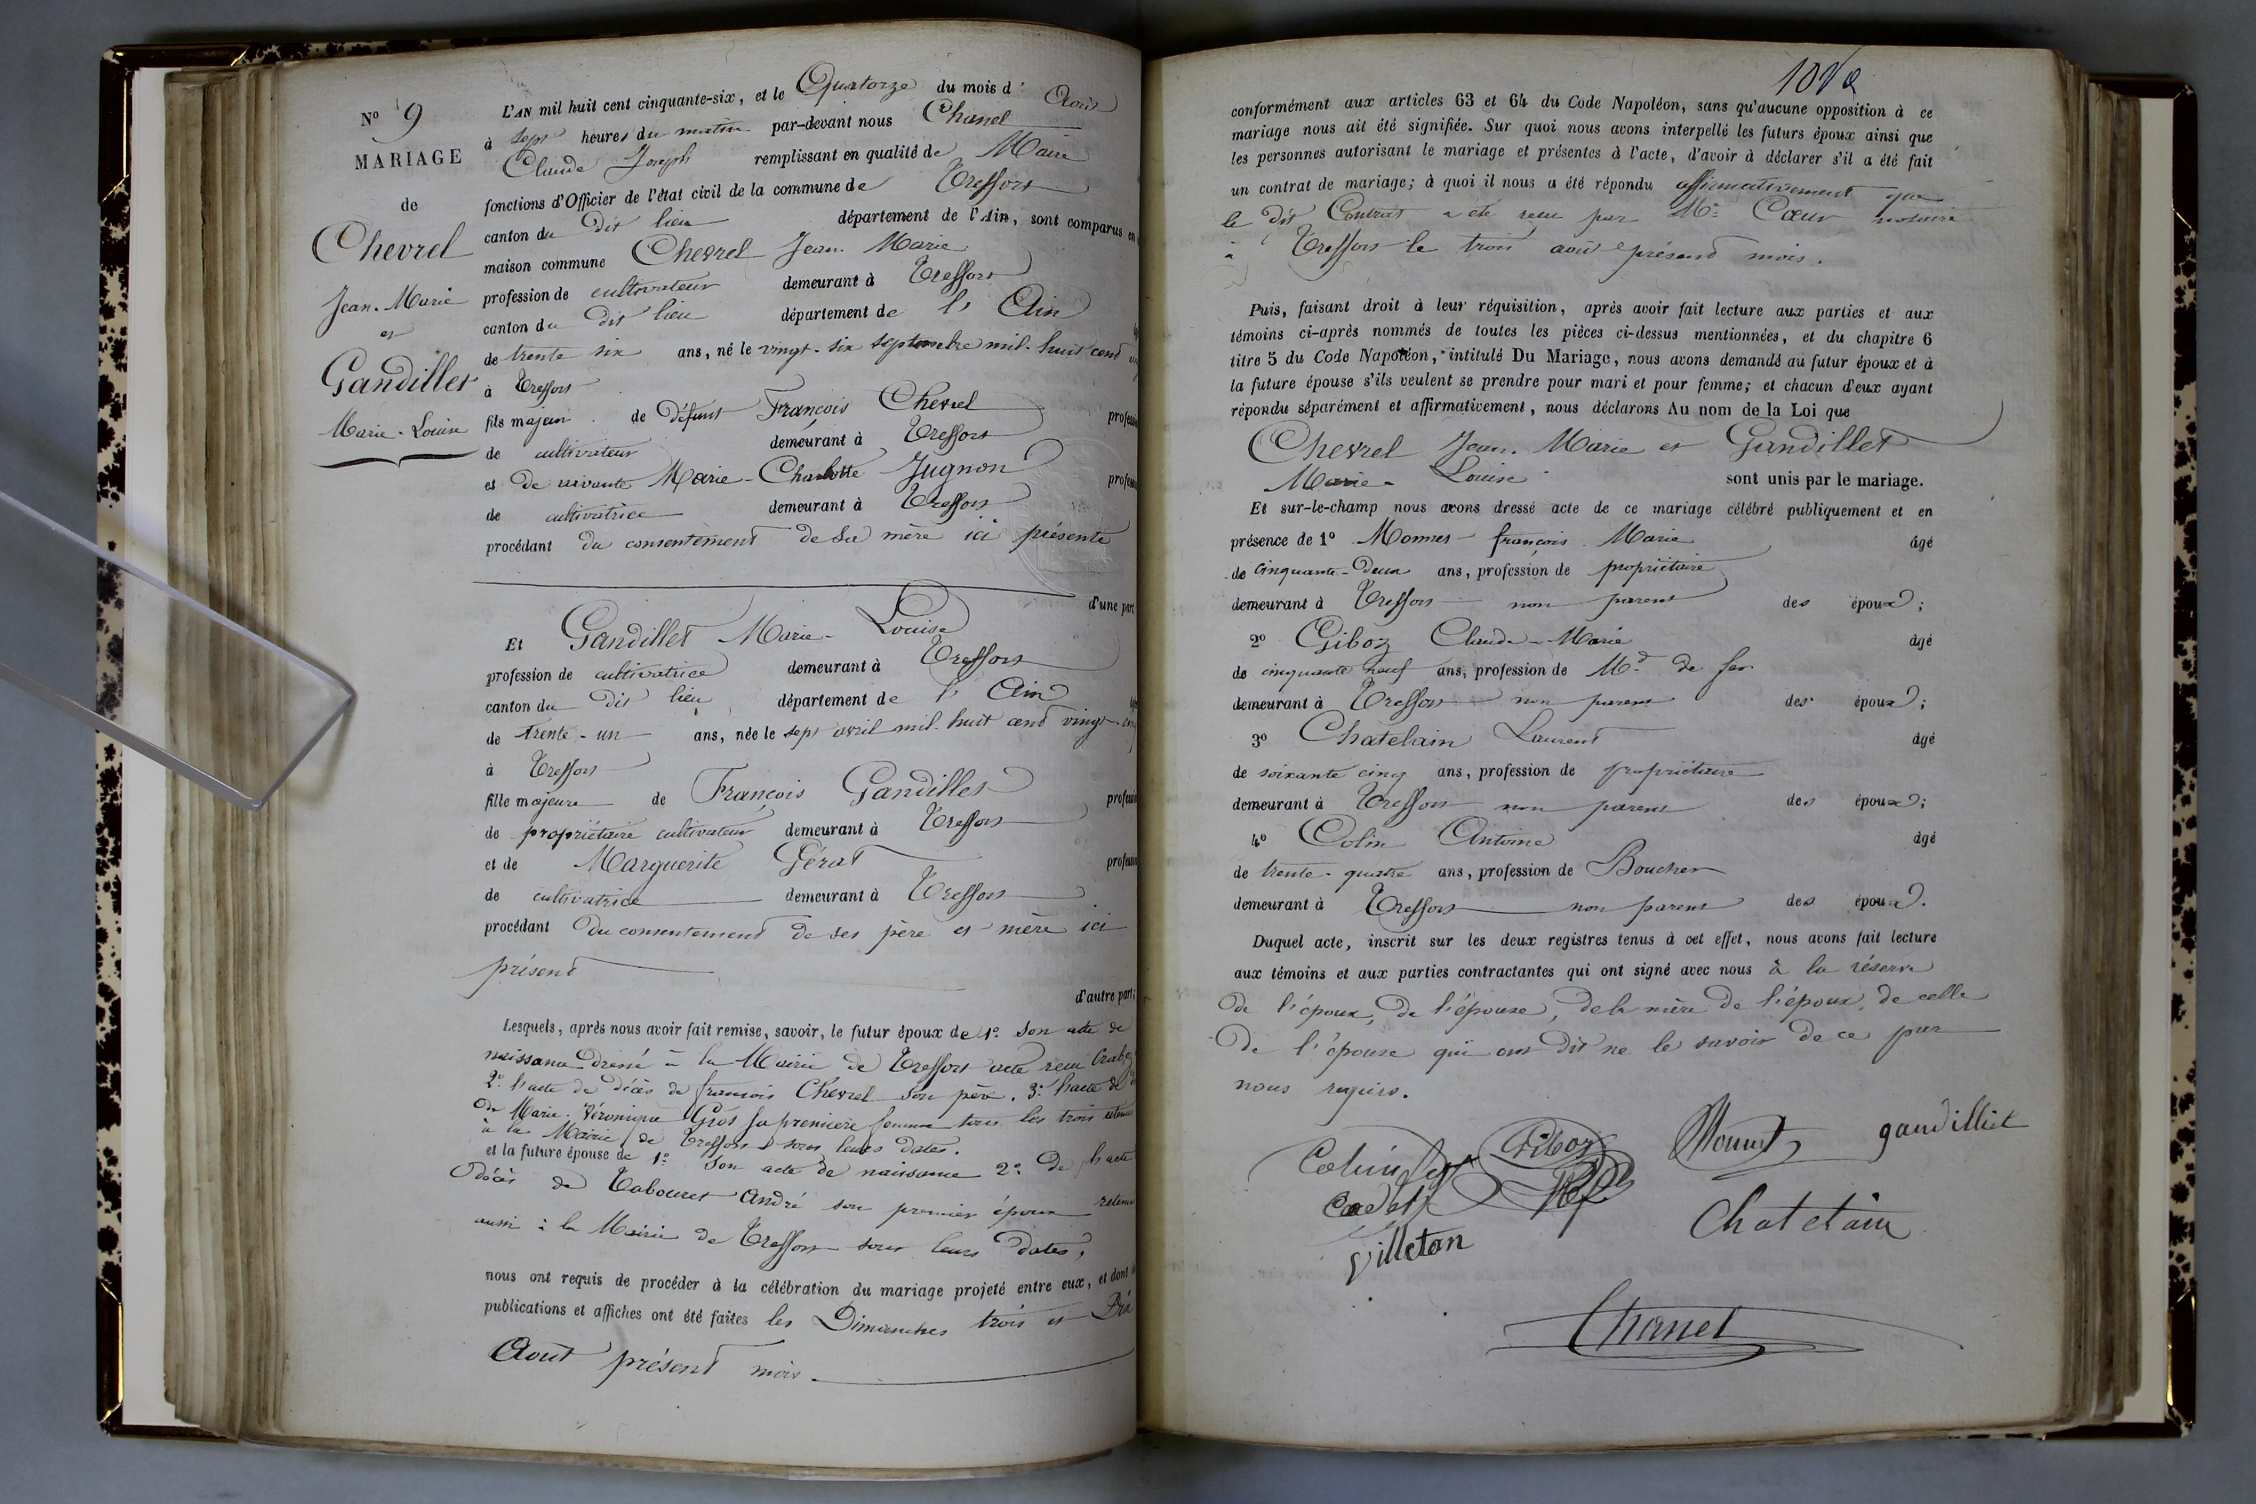 N° 9
MARIAGE
de
Chevrel
Jean-Marie
et
Gandillet
Marie-Louise
L'AN mil huit cent cinquante-six, et le Quatorze du mois d' Août
à sept heures du matin par-devant nous Chanel
Claude Joseph remplissant en qualité de Maire
fonctions d'Officier de l'état civil de la commune de Treffort
canton du dit lieu département de l'Ain, sont comparus en
maison commune Chevrel Jean-Marie
profession de cultivateur demeurant à Treffort
canton du dit lieu département de l'Ain
de trente six ans, né le vingt-six septembre mil-huit cent
à Treffort
fils majeur de défunt François Chevrel
de cultivateur demeurant à Treffort
et de vivante Marie-Charlotte Jugnon
de cultivatrice demeurant à Treffort
procédant du consentement de sa mère ici présente
d'une part
Et Gandillet Marie-Louise
profession de cultivatrice demeurant à Treffort
canton du dit lieu département de l'Ain
de trente-un ans, née le sept avril mil-huit cent vingt-
à Treffort
fille majeure de François Gandillet
de propriétaire cultivateur demeurant à Treffort
et de Marguerite Pérat
de cultivatrice demeurant à Treffort
procédant du consentement de ses père et mère ici
présent
d'autre part;
Lesquels, après nous avoir fait remise, savoir, le futur époux de 1° son acte de
naissance dressé à la Mairie de Treffort acte reçu
2° l'acte de décès de françois Chevrel son père. 3° l'acte de
de Marie-Véronique Gros sa première femme tous les trois retenus
à la Mairie de Treffort sous leurs dates.
et la future épouse de 1° Son acte de naissance 2° De l'acte
décès de Tabouret André son premier époux retenus
aussi à la Mairie de Treffort sous leurs dates,
nous ont requis de procéder à la célébration du mariage projeté entre eux, et dont
publications et affiches ont été faites les Dimanches trois et Dix
Aout présent mois.
conformément aux articles 63 et 64 du Code Napoléon, sans qu'aucune opposition à ce
mariage nous ait été signifiée. Sur quoi nous avons interpellé les futurs époux ainsi que
les personnes autorisant le mariage et présentes à l'acte, d'avoir à déclarer s'il a été fait
un contrat de mariage; à quoi il nous a été répondu affirmativement que
le dit Contrat a été reçu par Me Cœur notaire
à Treffort le trois août présent mois.
Puis, faisant droit à leur réquisition, après avoir fait lecture aux parties et aux
témoins ci-après nommés de toutes les pièces ci-dessus mentionnées, et du chapitre 6
titre 5 du Code Napoléon, intitulé Du Mariage, nous avons demandé au futur époux et à
la future épouse s'ils veulent se prendre pour mari et pour femme; et chacun d'eux ayant
répondu séparément et affirmativement, nous déclarons Au nom de la Loi que
Chevrel Jean-Marie et Gandillet
Marie-Louise sont unis par le mariage.
Et sur-le-champ nous avons dressé acte de ce mariage célébré publiquement et en
présence de 1° Monnet françois Marie âgé
de cinquante-deux ans, profession de propriétaire
demeurant à Treffort non parent des époux;
2° Giboz Claude-Marie âgé
de cinquante neuf ans, profession de Md de fer
demeurant à Treffort non parent des époux;
3° Chatelain Laurent âgé
de soixante cinq ans, profession de propriétaire
demeurant à Treffort non parent des époux;
4° Colin Antoine âgé
de trente-quatre ans, profession de Boucher
demeurant à Treffort non parent des époux.
Duquel acte, inscrit sur les deux registres tenus à cet effet, nous avons fait lecture
aux témoins et aux parties contractantes qui ont signé avec nous à la réserve
de l'époux, de l'épouse, de la mère de l'époux, de celle
de l'épouse qui ont dit ne le savoir de ce par
nous requis.
Colin Giboz Monnet gandilliet
Cadet
Villetan Chatelain
Chanel